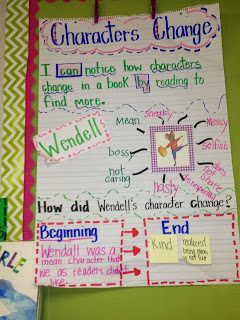 Characters Change
I can notice how characters
change in a book by reading to
find more.
Wendell
sneaky
mean
messy
bossy
selfish
not
caring
nasty
does
not
care
How did Wendell's character change?
Beginning
Wendall was a
mean character that
we as readers didn't
like.
End
Kind
realized
being mean
is not fun
RLE